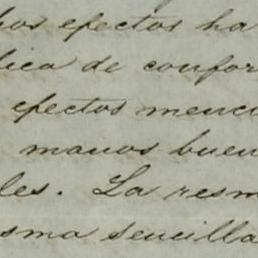 hos efectos ha
lica de confor
efectos menci
manos buen
les. La resm
sma sencilla